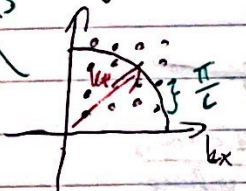 k_F
π/L
k_x